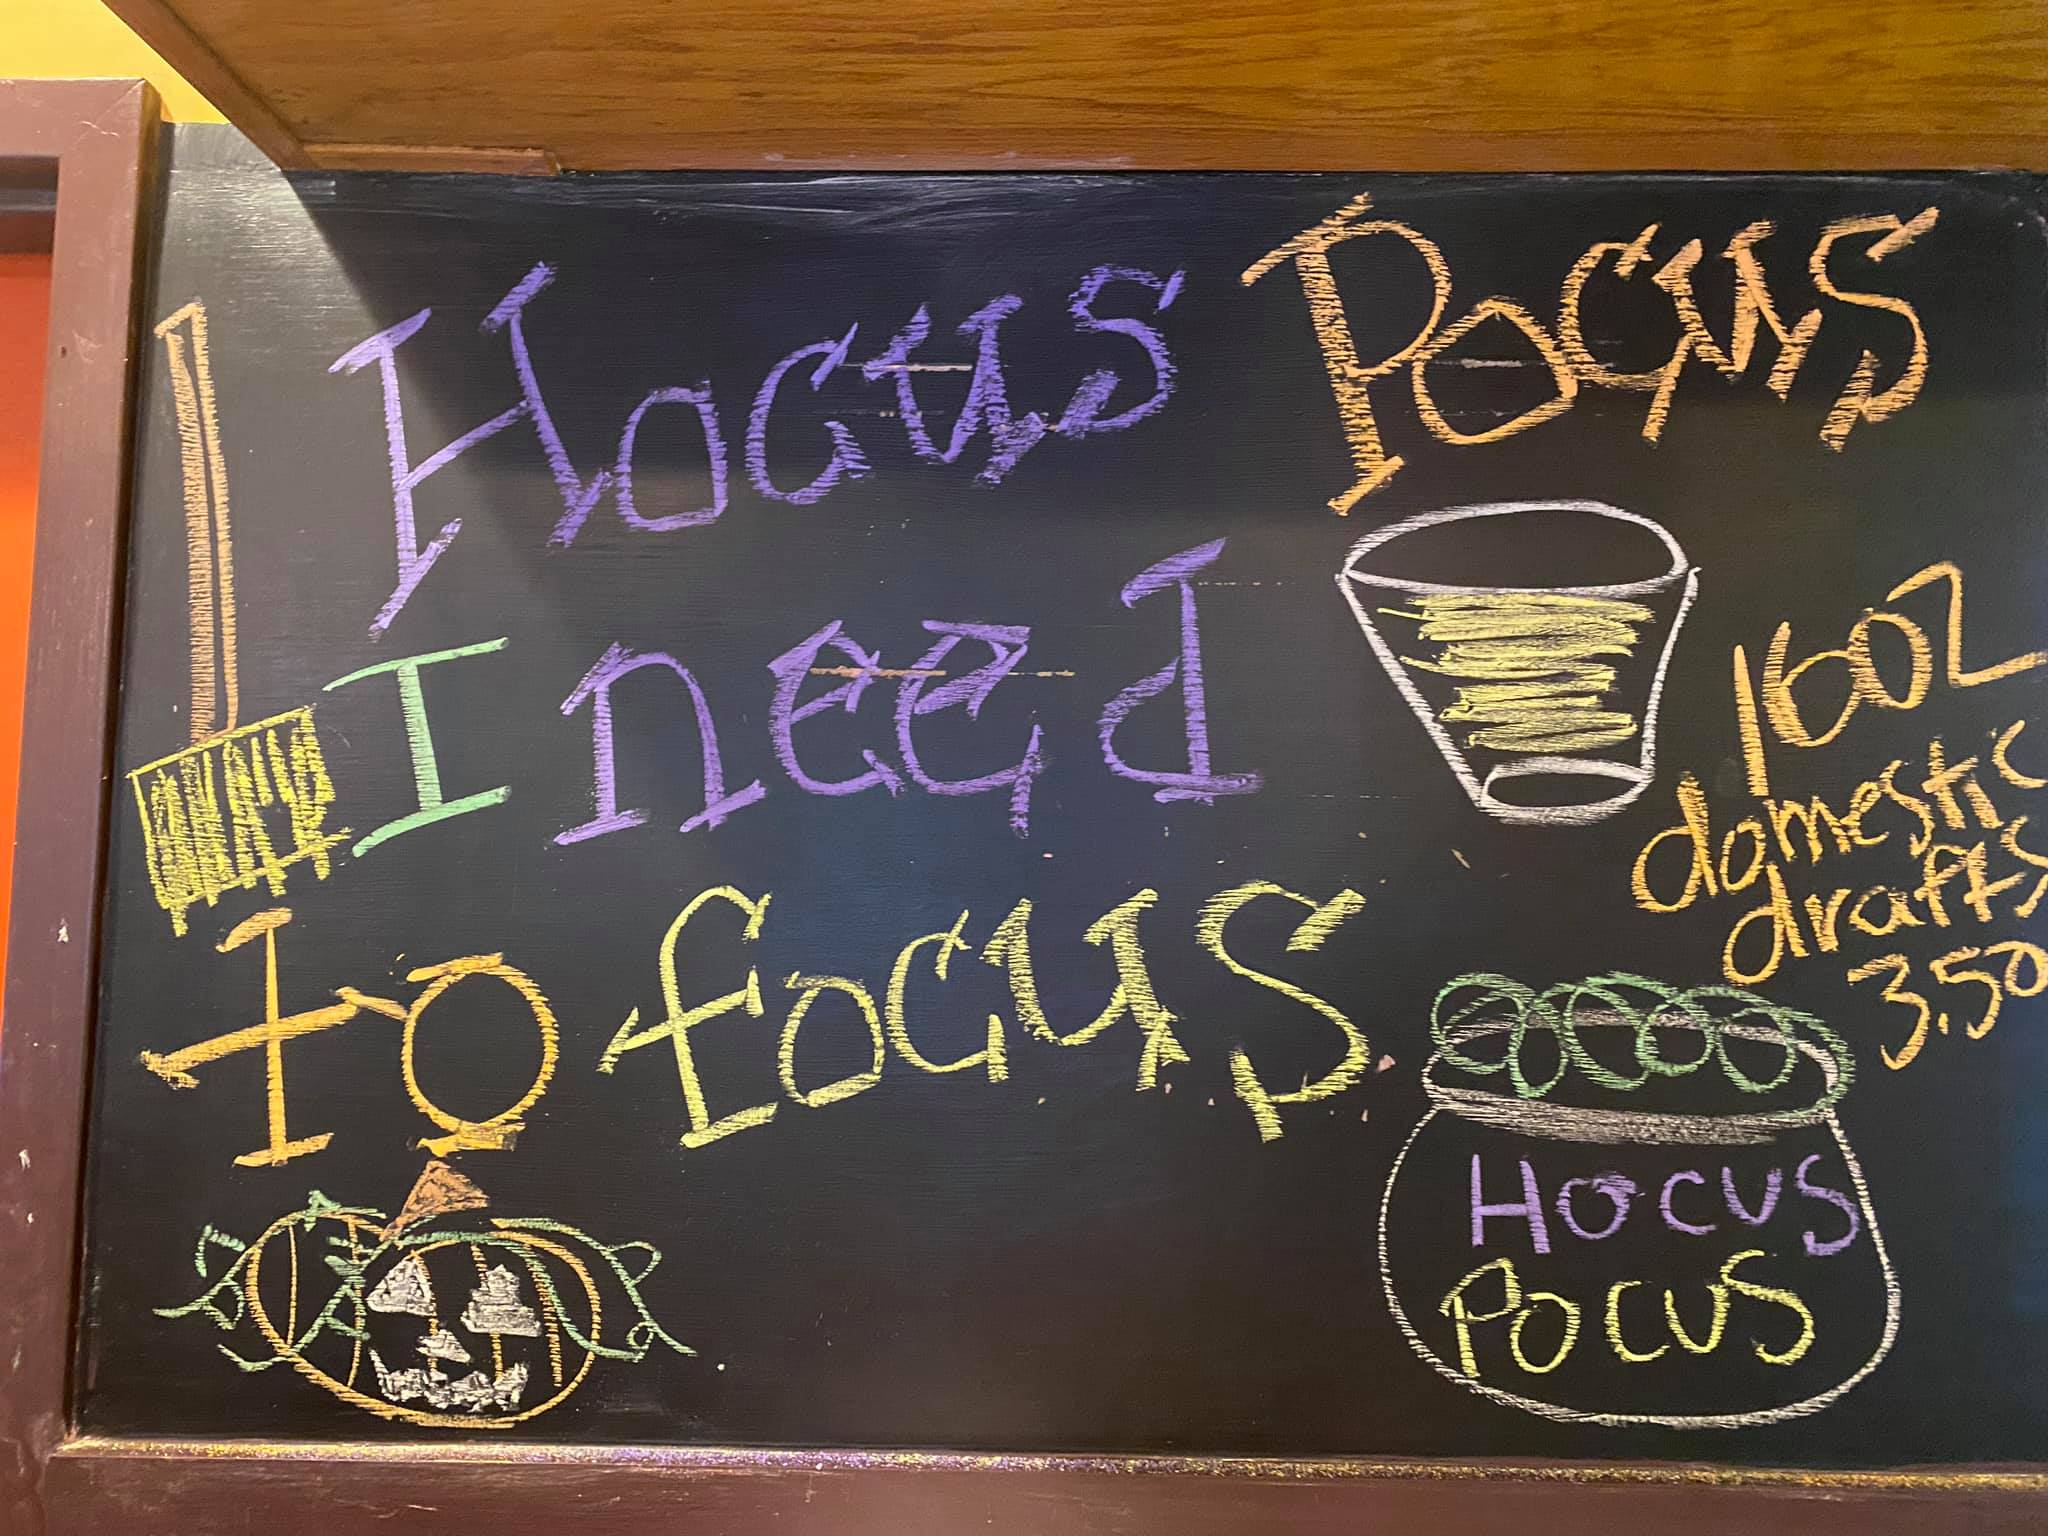 Hocus Pocus
I need
To focus
16oz
domestic
drafts
3.50
Hocus
Pocus